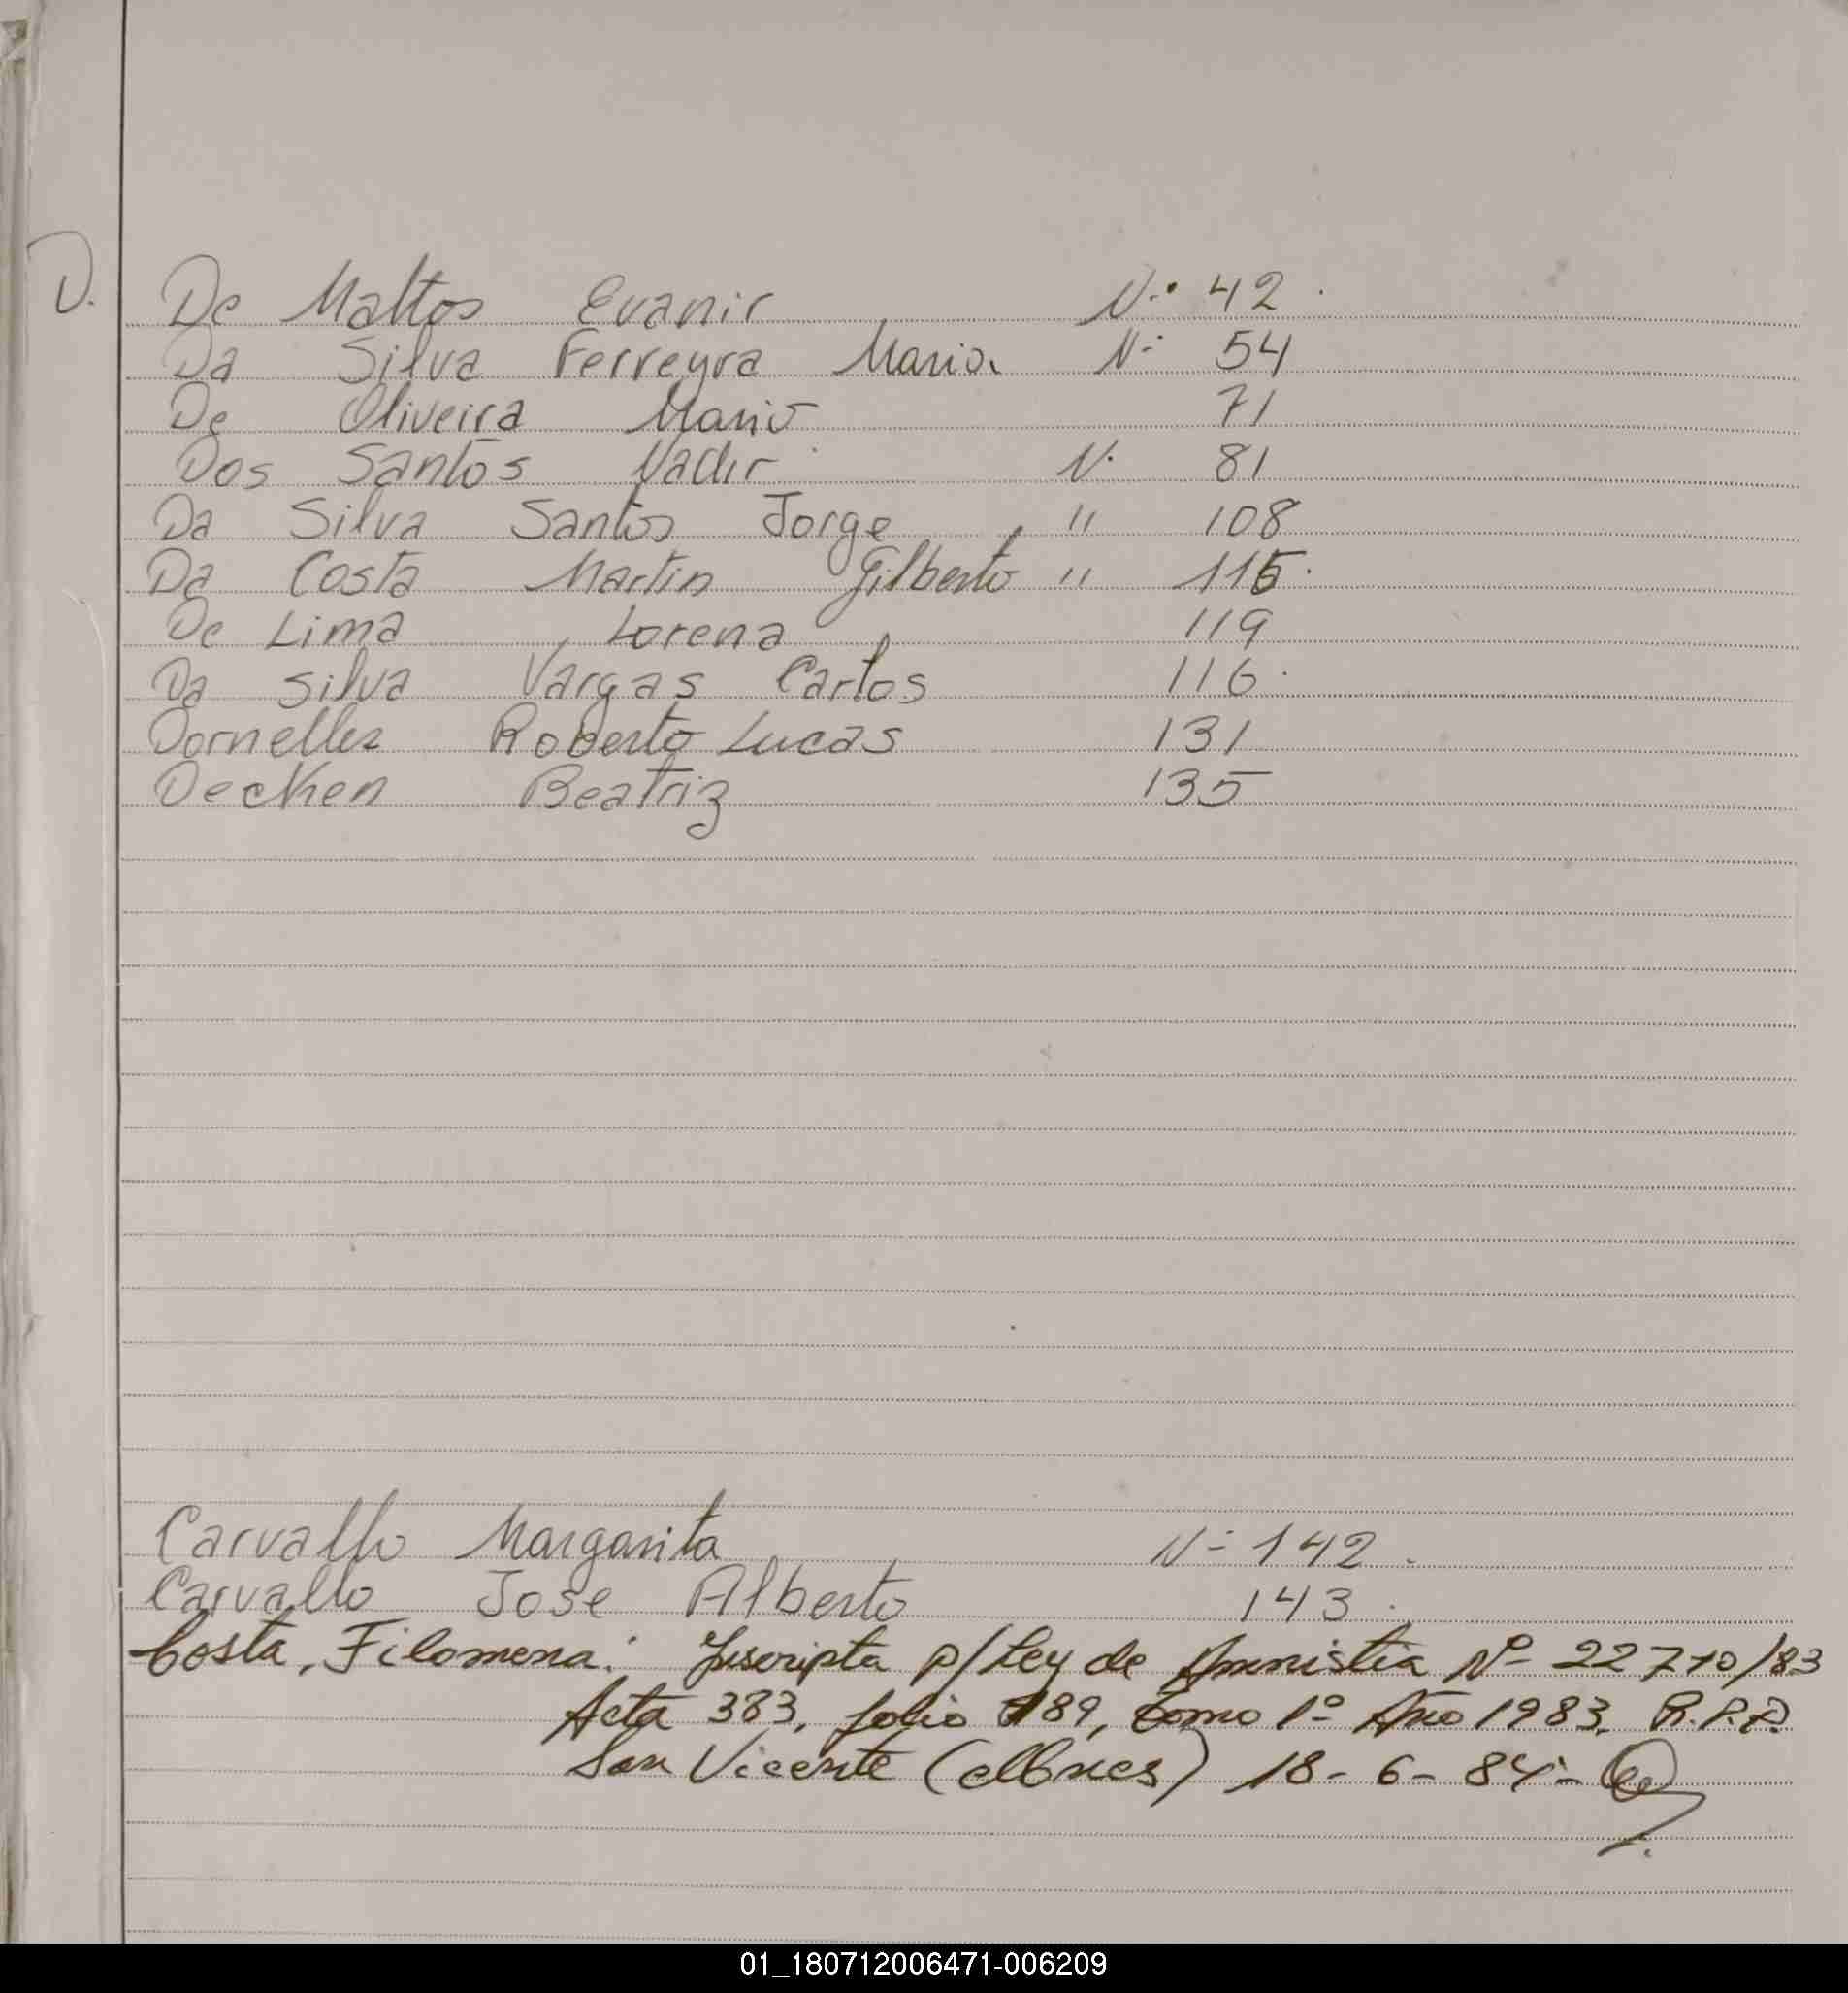 D.
De Mattos Evanir N.° 42.
Da Silva Ferreyra Maria N° 54
De Oliveira Mario 71
Dos Santos Nadir N. 81
Da Silva Santos Jorge " 108
Da Costa Martin Gilberto " 115.
De Lima Lorena 119
Da Silva Vargas Carlos 116.
Dornelles Roberto Lucas 131
Decken Beatriz 135
Carvallo Margarita N° 142.
Carvallo Jose Alberto 143.
Costa, Filomena: Inscripta p/Ley de Amnistia N° 22710/83
Acta 383, folio 189, Tomo 1° Año 1983. R.P.P.
San Vicente (Mnes) 18-6-84-
01_180712006471-006209